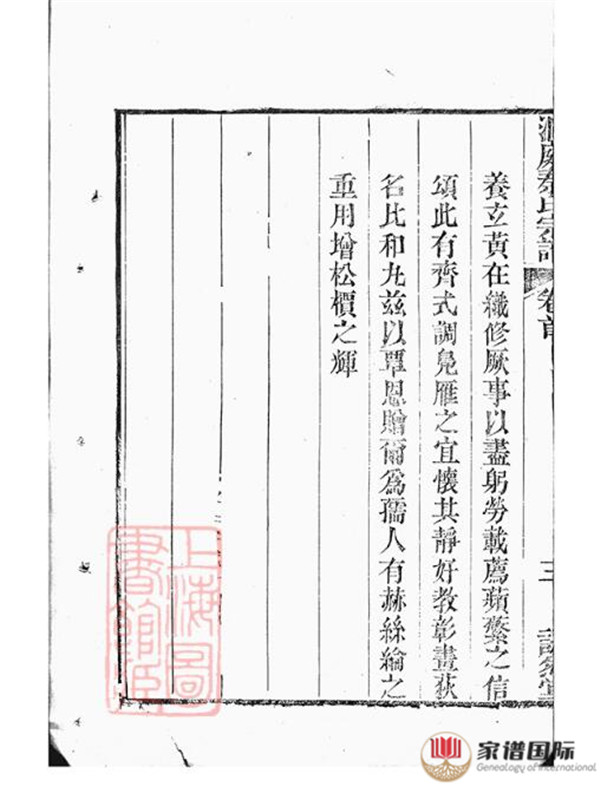 洞庭秦氏宗譜
卷首
三
養立黃在纖修厥事以盡躬勞載薦蘋蘩之信
頌此有齊式調鳧雁之宜懷其靜好教彰畫荻
名比和丸茲以覃恩贈爾為孺人有赫絲綸之
重用增松檟之輝
上海圖書館
家谱国际
Genealogy of International